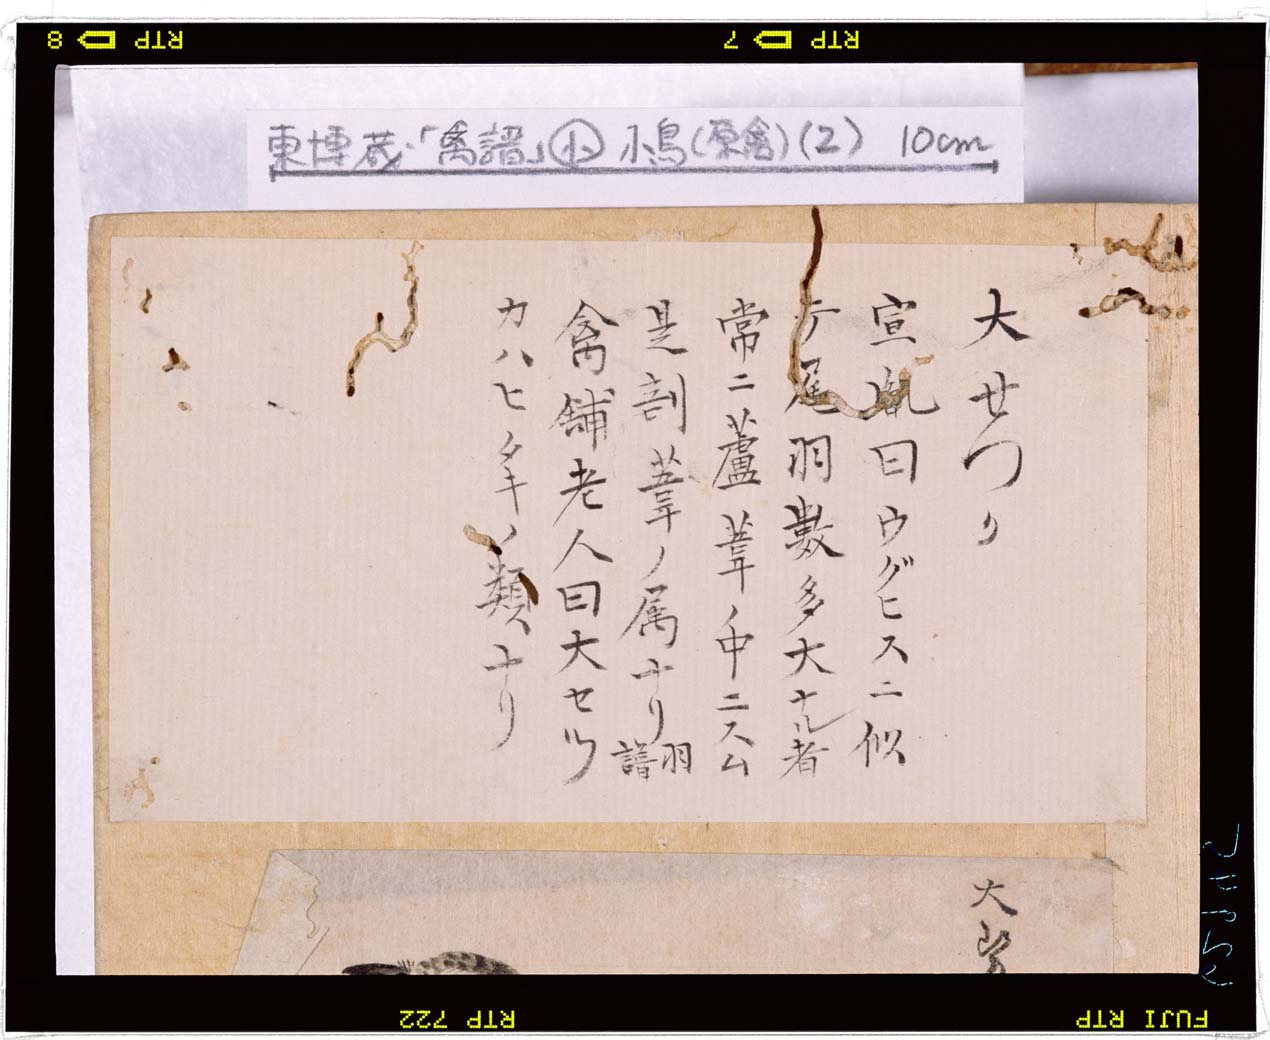 RTP 8
RTP 7
東博蔵「禽譜」小 小鳥(原禽)(2) 10cm
大せつか
宣胤曰ウグヒスニ似
テ尾羽數多大ナル者
常ニ蘆葦ノ中ニスム
是剖葦ノ属ナリ羽譜
禽舗老人曰大セツ
カハヒタキノ類ナリ
大
RTP 722
FUJI RTP